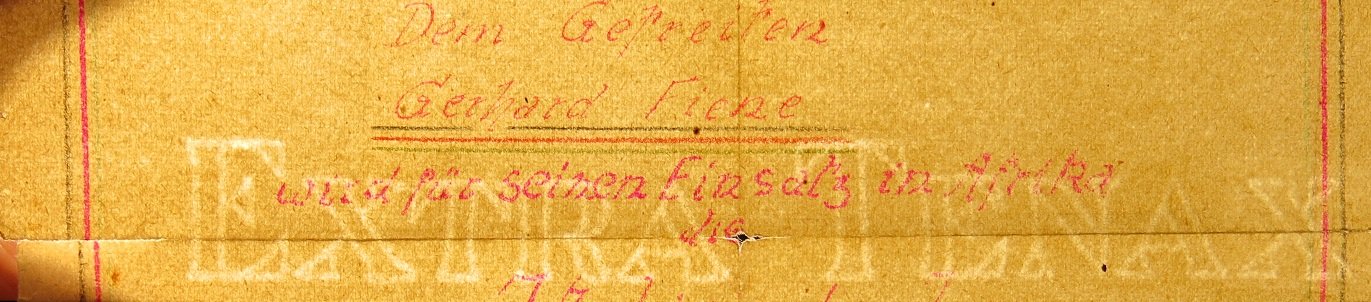 Dem Gefreiten
Gerhard Fiene
wird für seinen Einsatz in Afrika
die
EXTRA TENAX